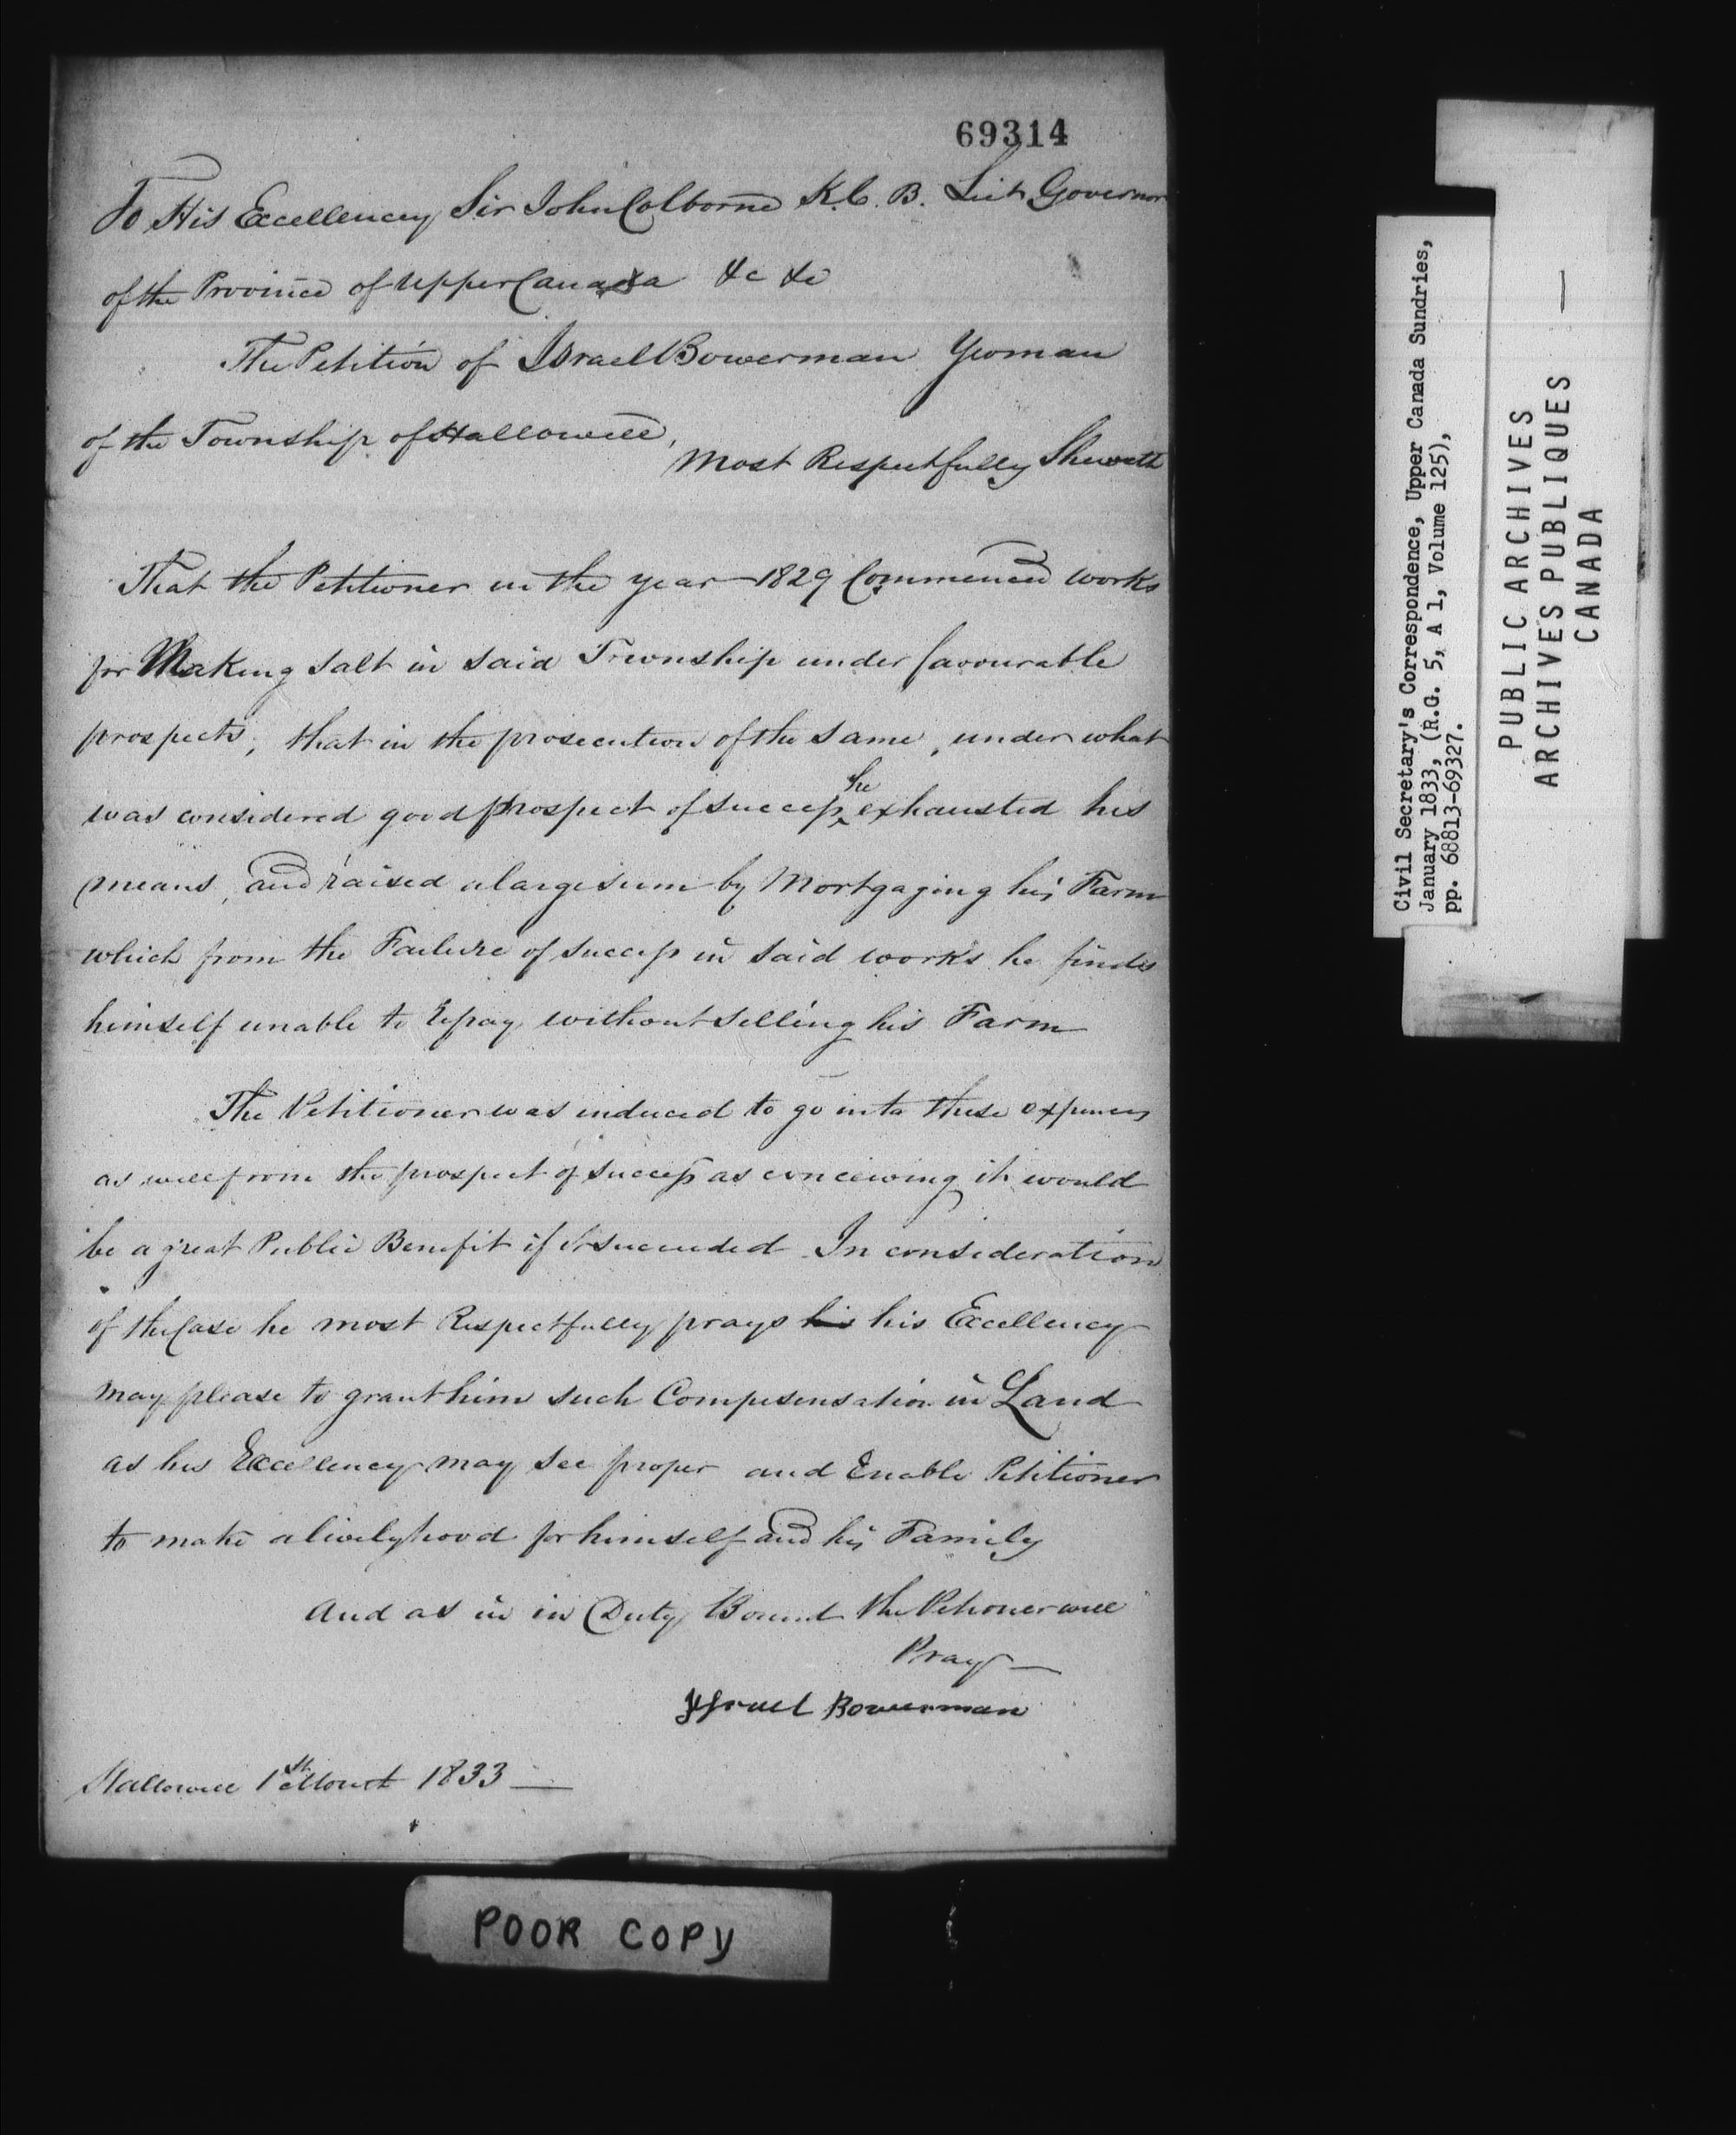 69314
To His Excellency Sir John Colborne K.C.B. Liut Governor
of the Province of Upper Canada &c &c
The Petition of Israel Bowerman Yeoman
of the Township of Hallowell,
Most Respectfully Sheweth
That the Petitioner in the year 1829 Commenced works
for Making Salt in said Township under favourable
prospects, that in the prosecution of the same, under what
was considered good prospect of success he exhausted his
means, and raised a large sum by Mortgaging his Farm
which from the Failure of success in said works he finds
himself unable to repay without selling his Farm
The Petitioner was induced to go into these expences
as well from the prospect of success as conceiving it would
be a great Public Benefit if it succeeded In consideration
of the Case he most Respectfully prays his his Excellency
may please to grant him such Compensensation in Land
as his Excellency may see proper and Enable Petitioner
to make a livelyhood for himself and his Family
And as in in Duty Bound the Petioner will
Pray —
Israel Bowerman
Hallowell 1st 1833 —
POOR COPY
Civil Secretary's Correspondence, Upper Canada Sundries,
January 1833, (R.G. 5, A 1, Volume 125),
pp. 68813-69327.
PUBLIC ARCHIVES —
ARCHIVES PUBLIQUES
CANADA